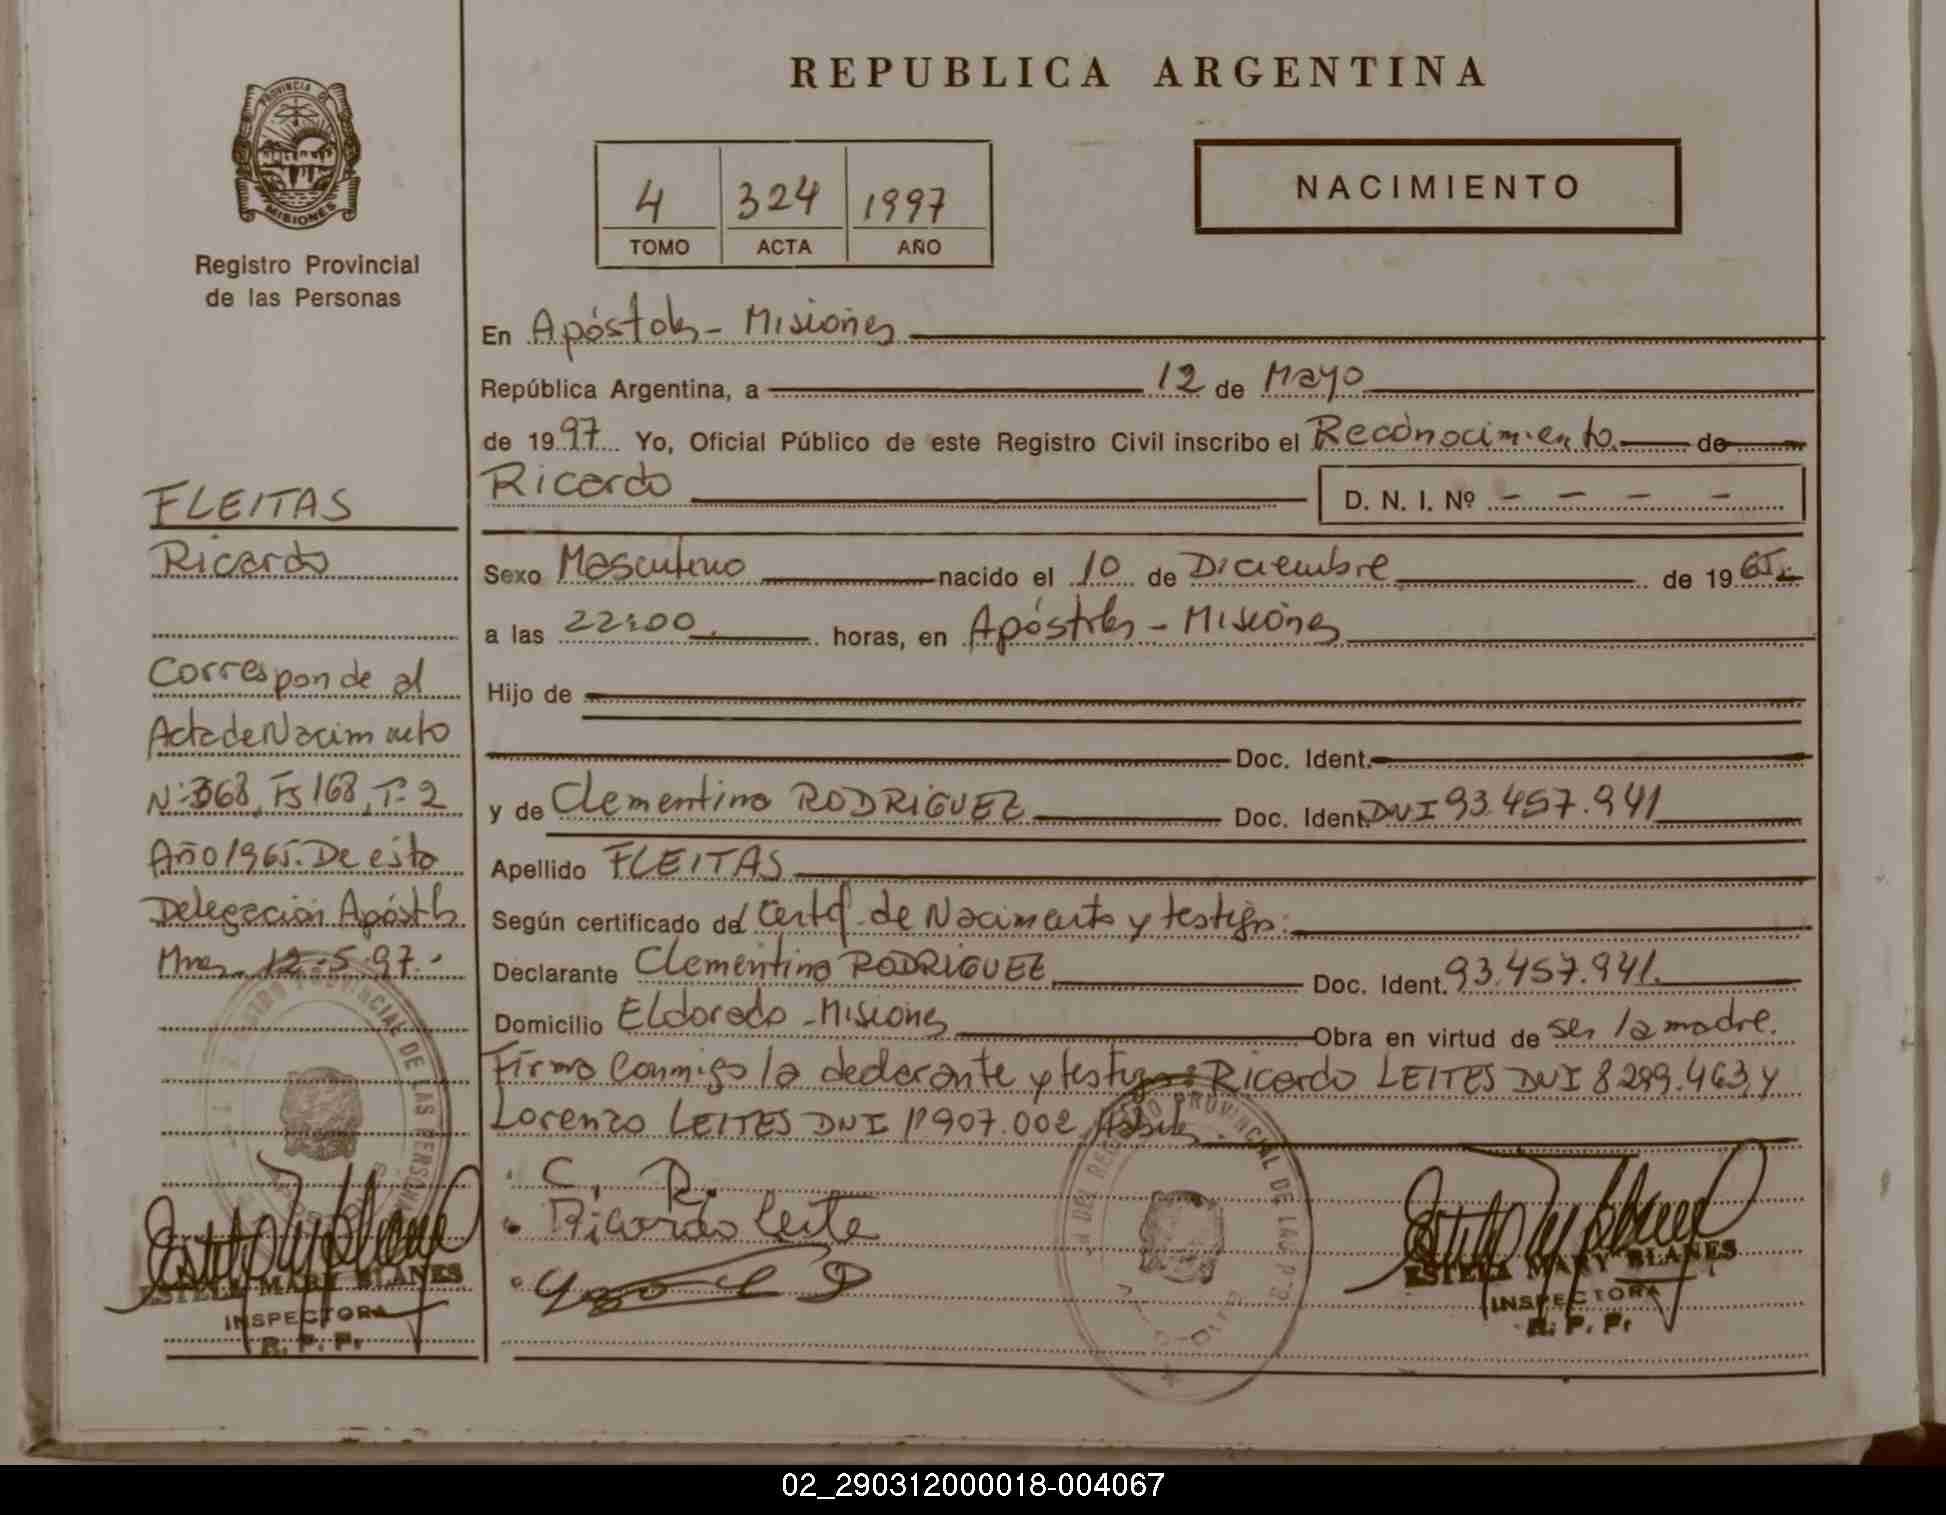 PROVINCIA DE
MISIONES
Registro Provincial
de las Personas
REPUBLICA ARGENTINA
4 324 1997
TOMO ACTA AÑO
NACIMIENTO
FLEITAS
Ricardo
Corresponde al
Acta de Nacimiento
Nº 368, Fs 168, Tº 2
Año 1965. De esta
Delegación Apóstoles
Mnes. 12.5.97.
ESTELA MARY BLANES
INSPECTORA
R. P. P.
En Apóstoles - Misiones
República Argentina, a 12 de Mayo
de 1997 Yo, Oficial Público de este Registro Civil inscribo el Reconocimiento de
Ricardo D. N. I. Nº - - - -
Sexo Masculino nacido el 10 de Diciembre de 1965.
a las 22:00 horas, en Apóstoles - Misiones
Hijo de
Doc. Ident.
y de Clementina RODRIGUEZ Doc. Ident. DNI 93.457.941
Apellido FLEITAS
Según certificado de Certf. de Nacimiento y testigos:
Declarante Clementina RODRIGUEZ Doc. Ident. 93.457.941.
Domicilio Eldorado - Misiones Obra en virtud de ser la madre.
Firma Conmigo la declarante y testigos: Ricardo LEITES DNI 8.299.463, y
Lorenzo LEITES DNI 11.907.002,
C. R.
Ricardo Leite
REGISTRO PROVINCIAL DE LAS
ESTELA MARY BLANES
INSPECTORA
R. P. P.
02_290312000018-004067